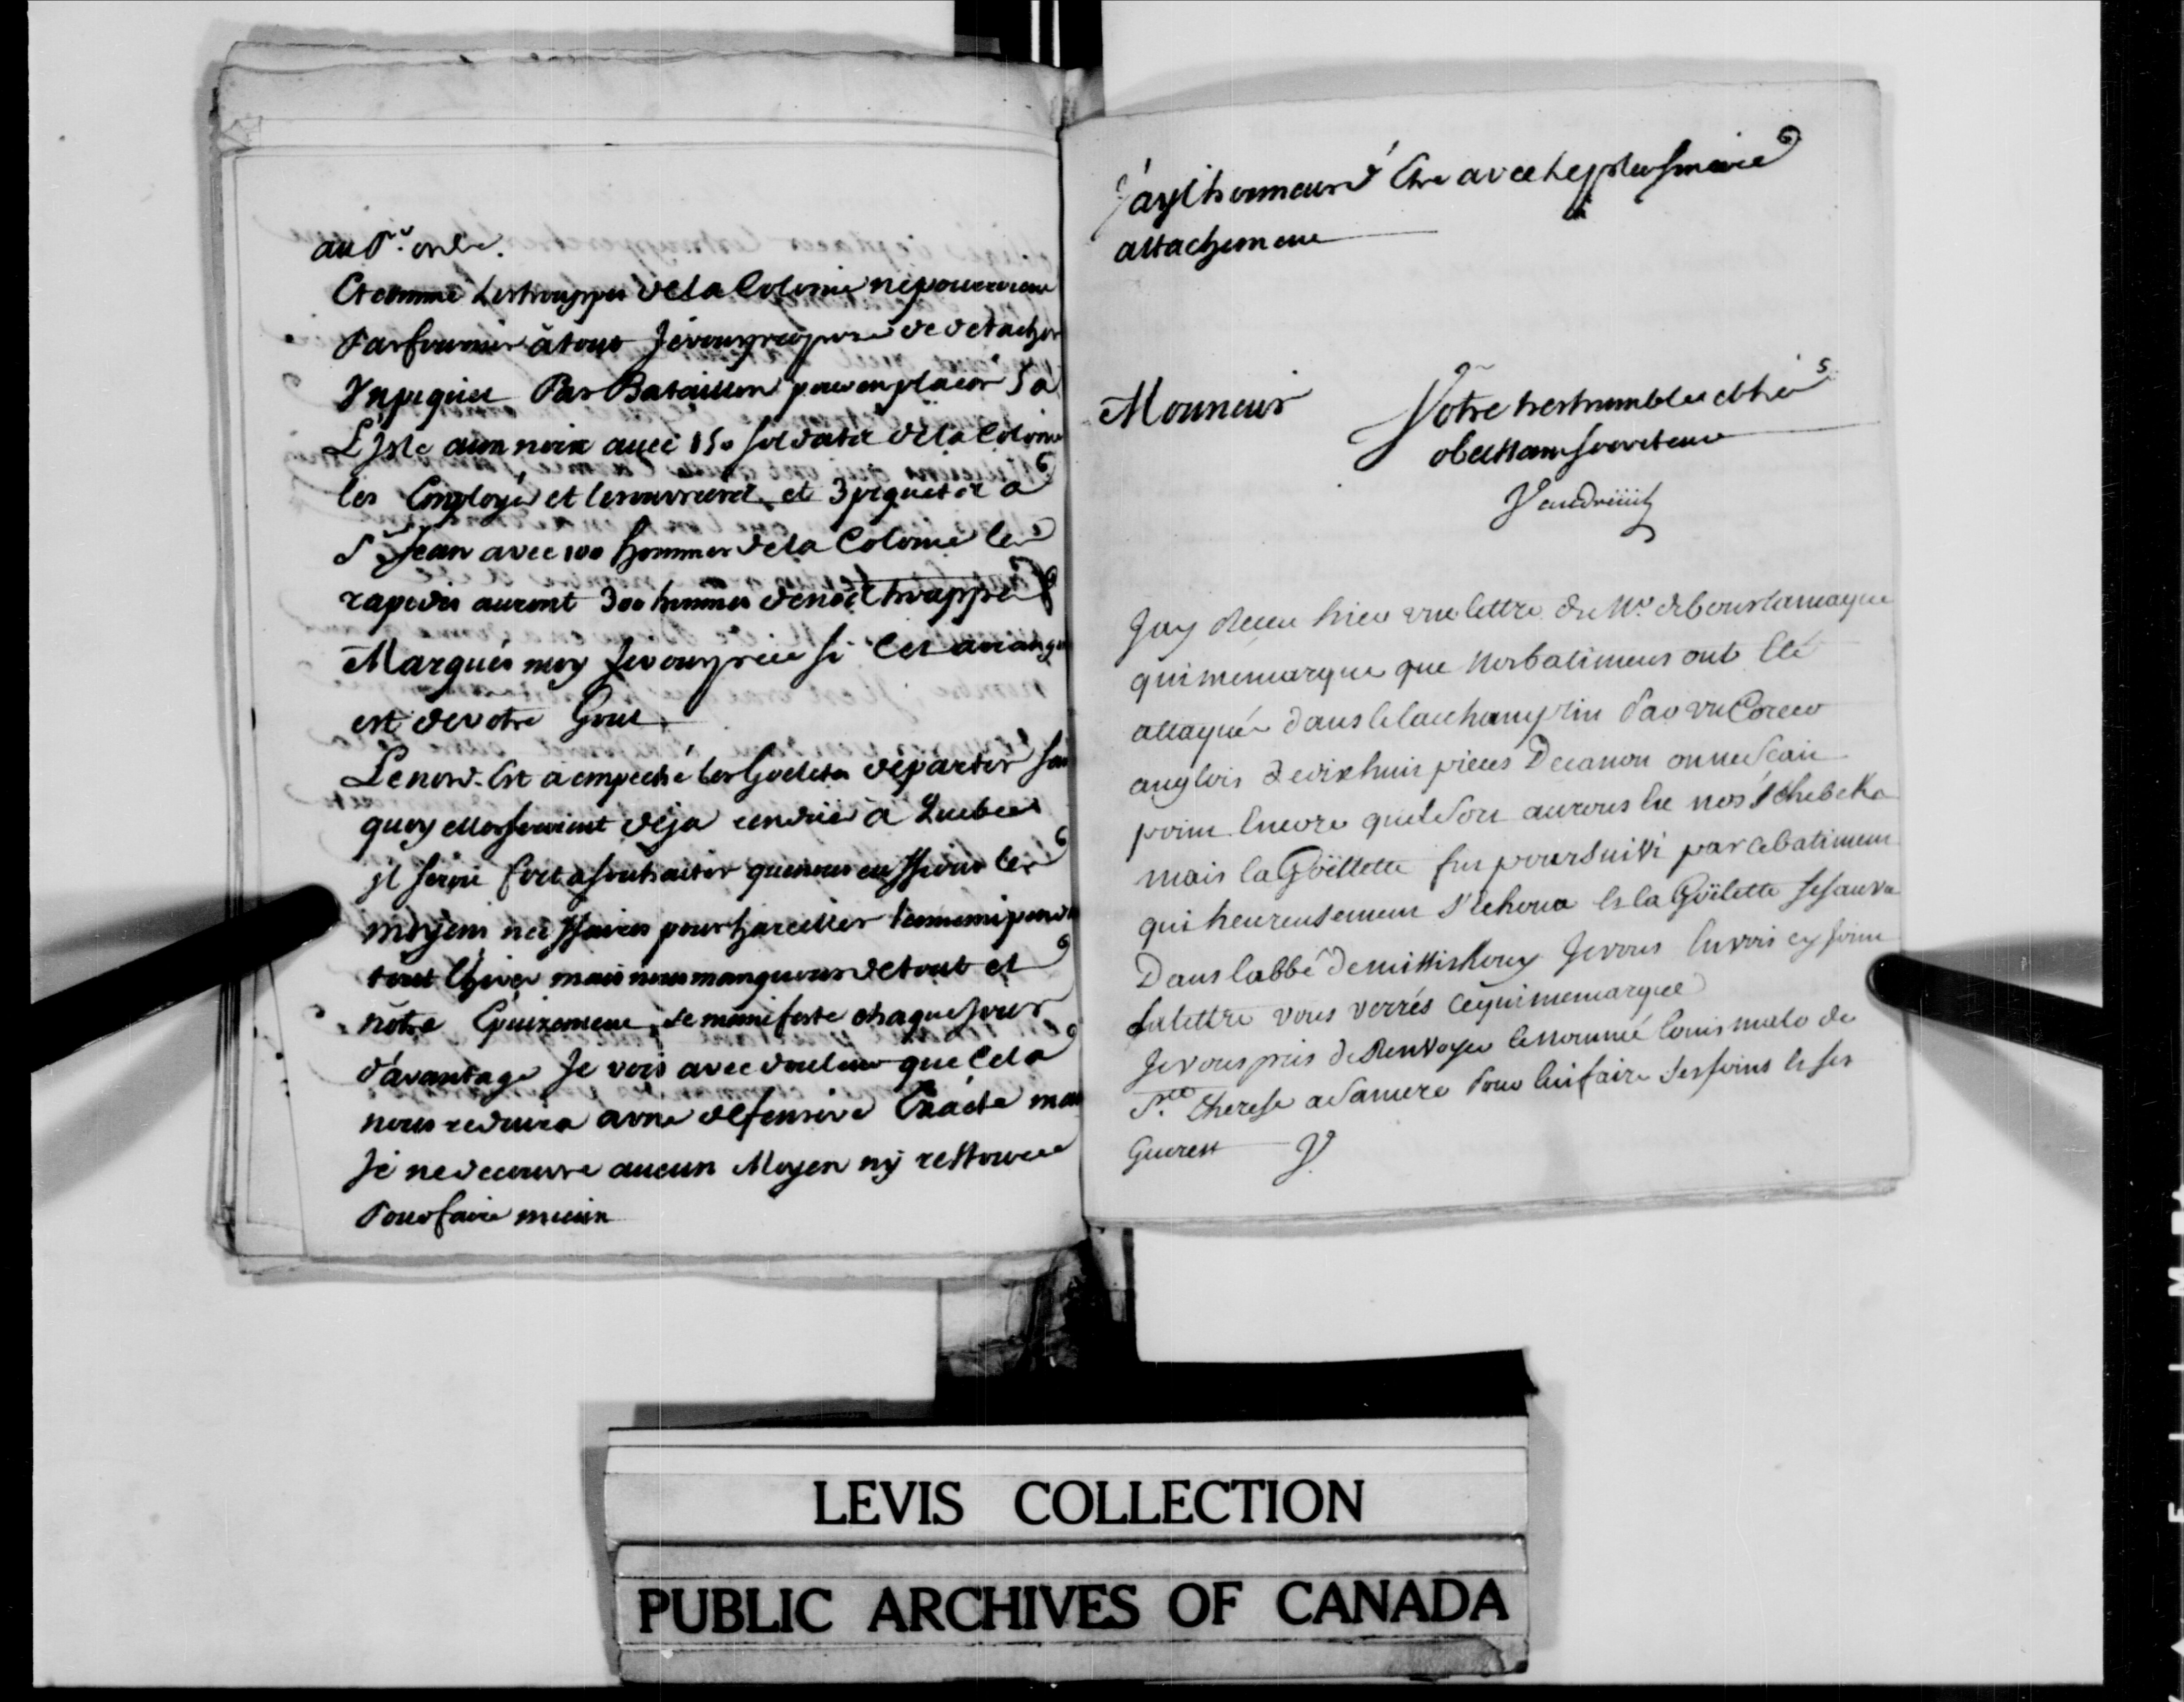 au Pr. ordre.
Et comme Les trouppes de la Colonie ne pourroient
Pas fournir à tout Je vous propose de detacher
Un piquet Par Bataillon pour en placer 5 a
L'Isle aux noix avec 150 soldats de la Colonie
les Employés et les ouvriers et 3 piquets a
St Jean avec 100 hommes de la Colonie les
rapides auront 300 hommes de nos trouppes
Marqués moy Je vous prie si cet arrang
est de votre Gout
Le nord-Est a empeché les Goeletes de partir sans
quoy elles seroient deja rendües a Quebec
il seroit fort a souhaiter que nous eussions les
moyens nécessaires pour harceller l'ennemi pendt
tout l'hiver mais nous manquons de tout et
nôtre Epuizement se manifeste chaque jour
d'avantage Je vois avec douleur que Cela
nous reduira a une defensive Exacte mais
Je ne decouvre aucun Moyen ny ressource
Pour faire mieux
J'ay l'honneur d'Etre avec le plus sincere
attachement
Monsieur
Votre tres humble et tres
obeissant serviteur
Vaudreüil
Jay Receu hier une lettre de Mr. de bourlamaque
qui me marque que nos batimens ont Eté
attaqués dans le lac champlin Par un Corcer
anglois de dix huit pieces De canon on ne Scait
point Encore quel Sort auront Eu nos Schebeks
mais la Goëllette fut poursuivi par ce batiment
qui heureusement s'Echoua Et la Goëlette se sauva
Dans la bbé de missiskouy Je vous Envois cy joint
Sa lettre vous verrés ce qui me marque
Je vous pris de Renvoyer le nommé louis malo de
Ste. therese a Sa mere Pour lui faire ses foins Et ses
Gueretz V
LEVIS COLLECTION
PUBLIC ARCHIVES OF CANADA